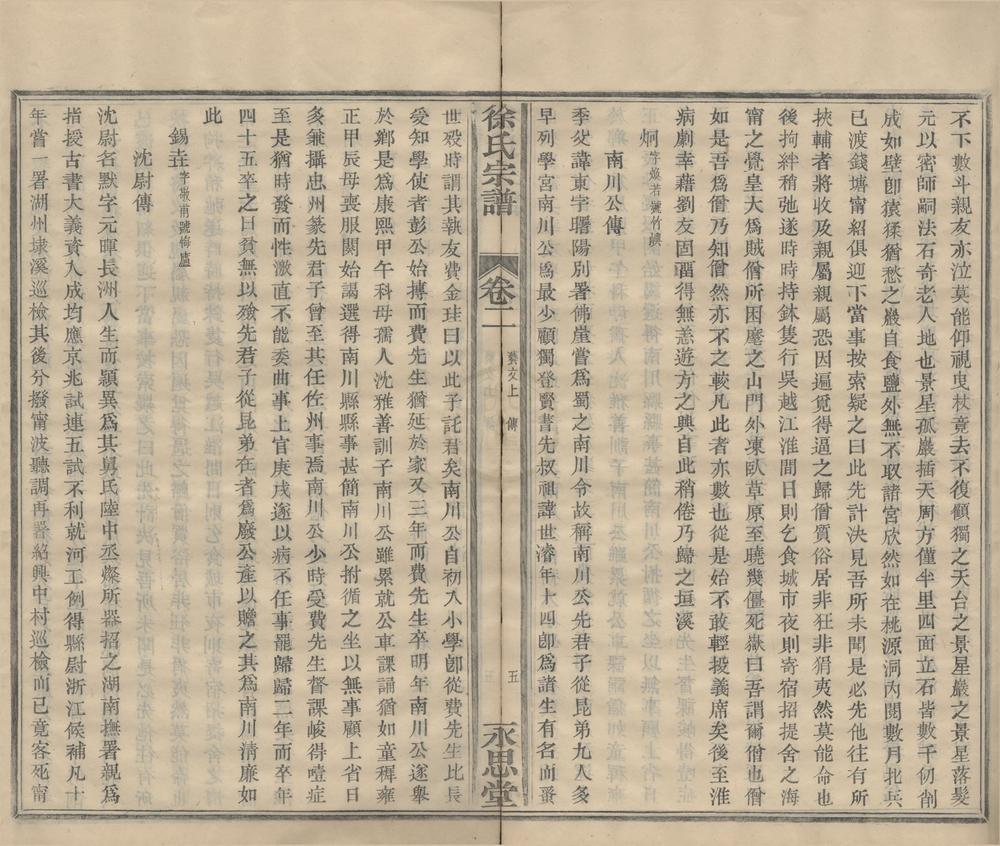 不下數斗親友亦泣莫能仰視曳杖竟去不復顧獨之天台之景星巖之景星落髮
元以密師嗣法石奇老人地也景星孤巖插天周方僅半里四面立石皆數千仞削
成如壁卽猿猱猶愁之巖自食鹽外無不取諸宮欣然如在桃源洞內閱數月北兵
已渡錢塘甯紹俱迎下當事按索疑之曰此先計決見吾所未聞是必先他往有所
挾輔者將收及親屬親屬恐因遍覓得逼之歸僧質俗居非狂非狷夷然莫能命也
後拘絆稍弛遂時時持鉢隻行吳越江淮間日則乞食城市夜則寄宿招提舍之海
甯之覺皇大爲賊僧所困麾之山門外凍臥草原至曉幾僵死嶽曰吾謂爾僧也僧
如是吾爲僧乃知僧然亦不之較凡此者亦數也從是始不敢輕扳義席矣後至淮
病劇幸藉劉友固酉得無恙遊方之興自此稍倦乃歸之垣溪
炯字煥若號竹嶼
南川公傳
季父諱東字曙陽別署佛崖嘗爲蜀之南川令故稱南川公先君子從昆弟九人多
早列學宮南川公爲最少顧獨登賢書先叔祖諱世濬年十四卽爲諸生有名而蚤
徐氏宗譜 卷二 藝文上 傳 五 永思堂
世歿時謂其執友費金珪曰以此子託君矣南川公自初入小學卽從費先生比長
愛知學使者彭公始摶而費先生猶延於家又三年而費先生卒明年南川公遂舉
於鄉是爲康熙甲午科母孺人沈雅善訓子南川公雖累就公車課誦猶如童穉雍
正甲辰母喪服闋始謁選得南川縣縣事甚簡南川公拊循之坐以無事顧上省日
多兼攝忠州篆先君子曾至其任佐州事焉南川公少時受費先生督課峻得噎症
至是猶時發而性激直不能委曲事上官庚戌遂以病不任事罷歸歸二年而卒年
四十五卒之日貧無以殮先君子從昆弟在者爲廢公產以贍之其爲南川清廉如
此
錫垚字墩甫號悔廬
沈尉傳
沈尉名默字元暉長洲人生而穎異爲其舅氏陸中丞燦所器招之湖南撫署親爲
指授古書大義資入成均應京兆試連五試不利就河工例得縣尉浙江候補凡十
年嘗一署湖州埭溪巡檢其後分撥甯波聽調再署紹興中村巡檢而已竟客死甯